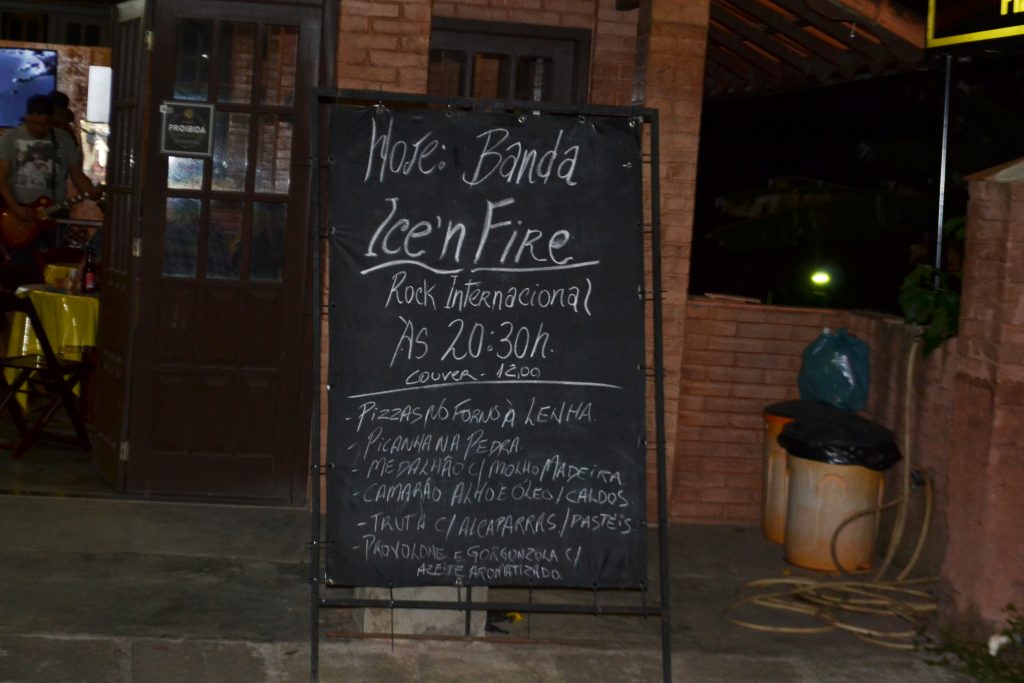 PROIBIDA
Hoje: Banda
Ice'n Fire
Rock Internacional
Às 20:30h.
couver - 12,00
- Pizzas no Forno à Lenha
- Picanha na Pedra
- Medalhão c/ molho Madeira
- Camarão Alho e Óleo / Caldos
- Truta c/ Alcaparras / Pastéis
- Provolone e Gorgonzola c/
Azeite Aromatizado